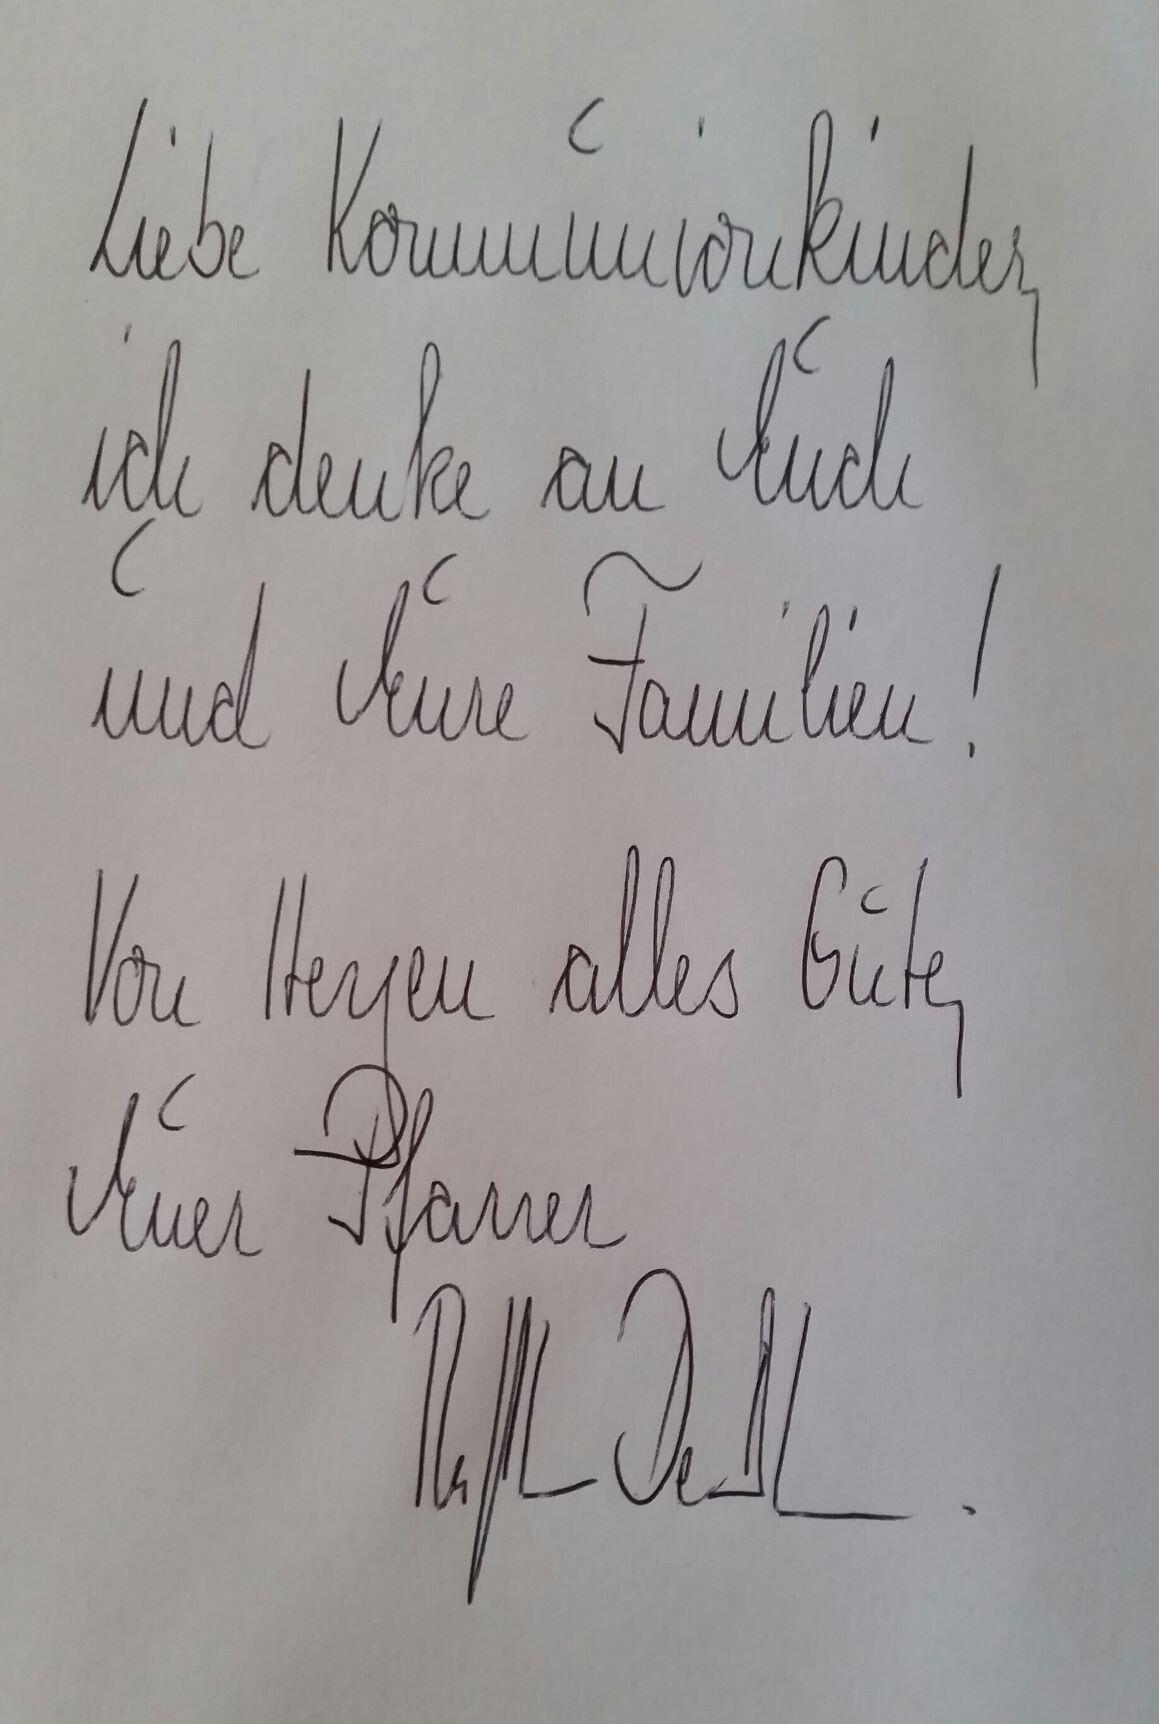 Liebe Kommunionkinder,
ich denke an Euch
und Eure Familien!
Von Herzen alles Gute,
Euer Pfarrer